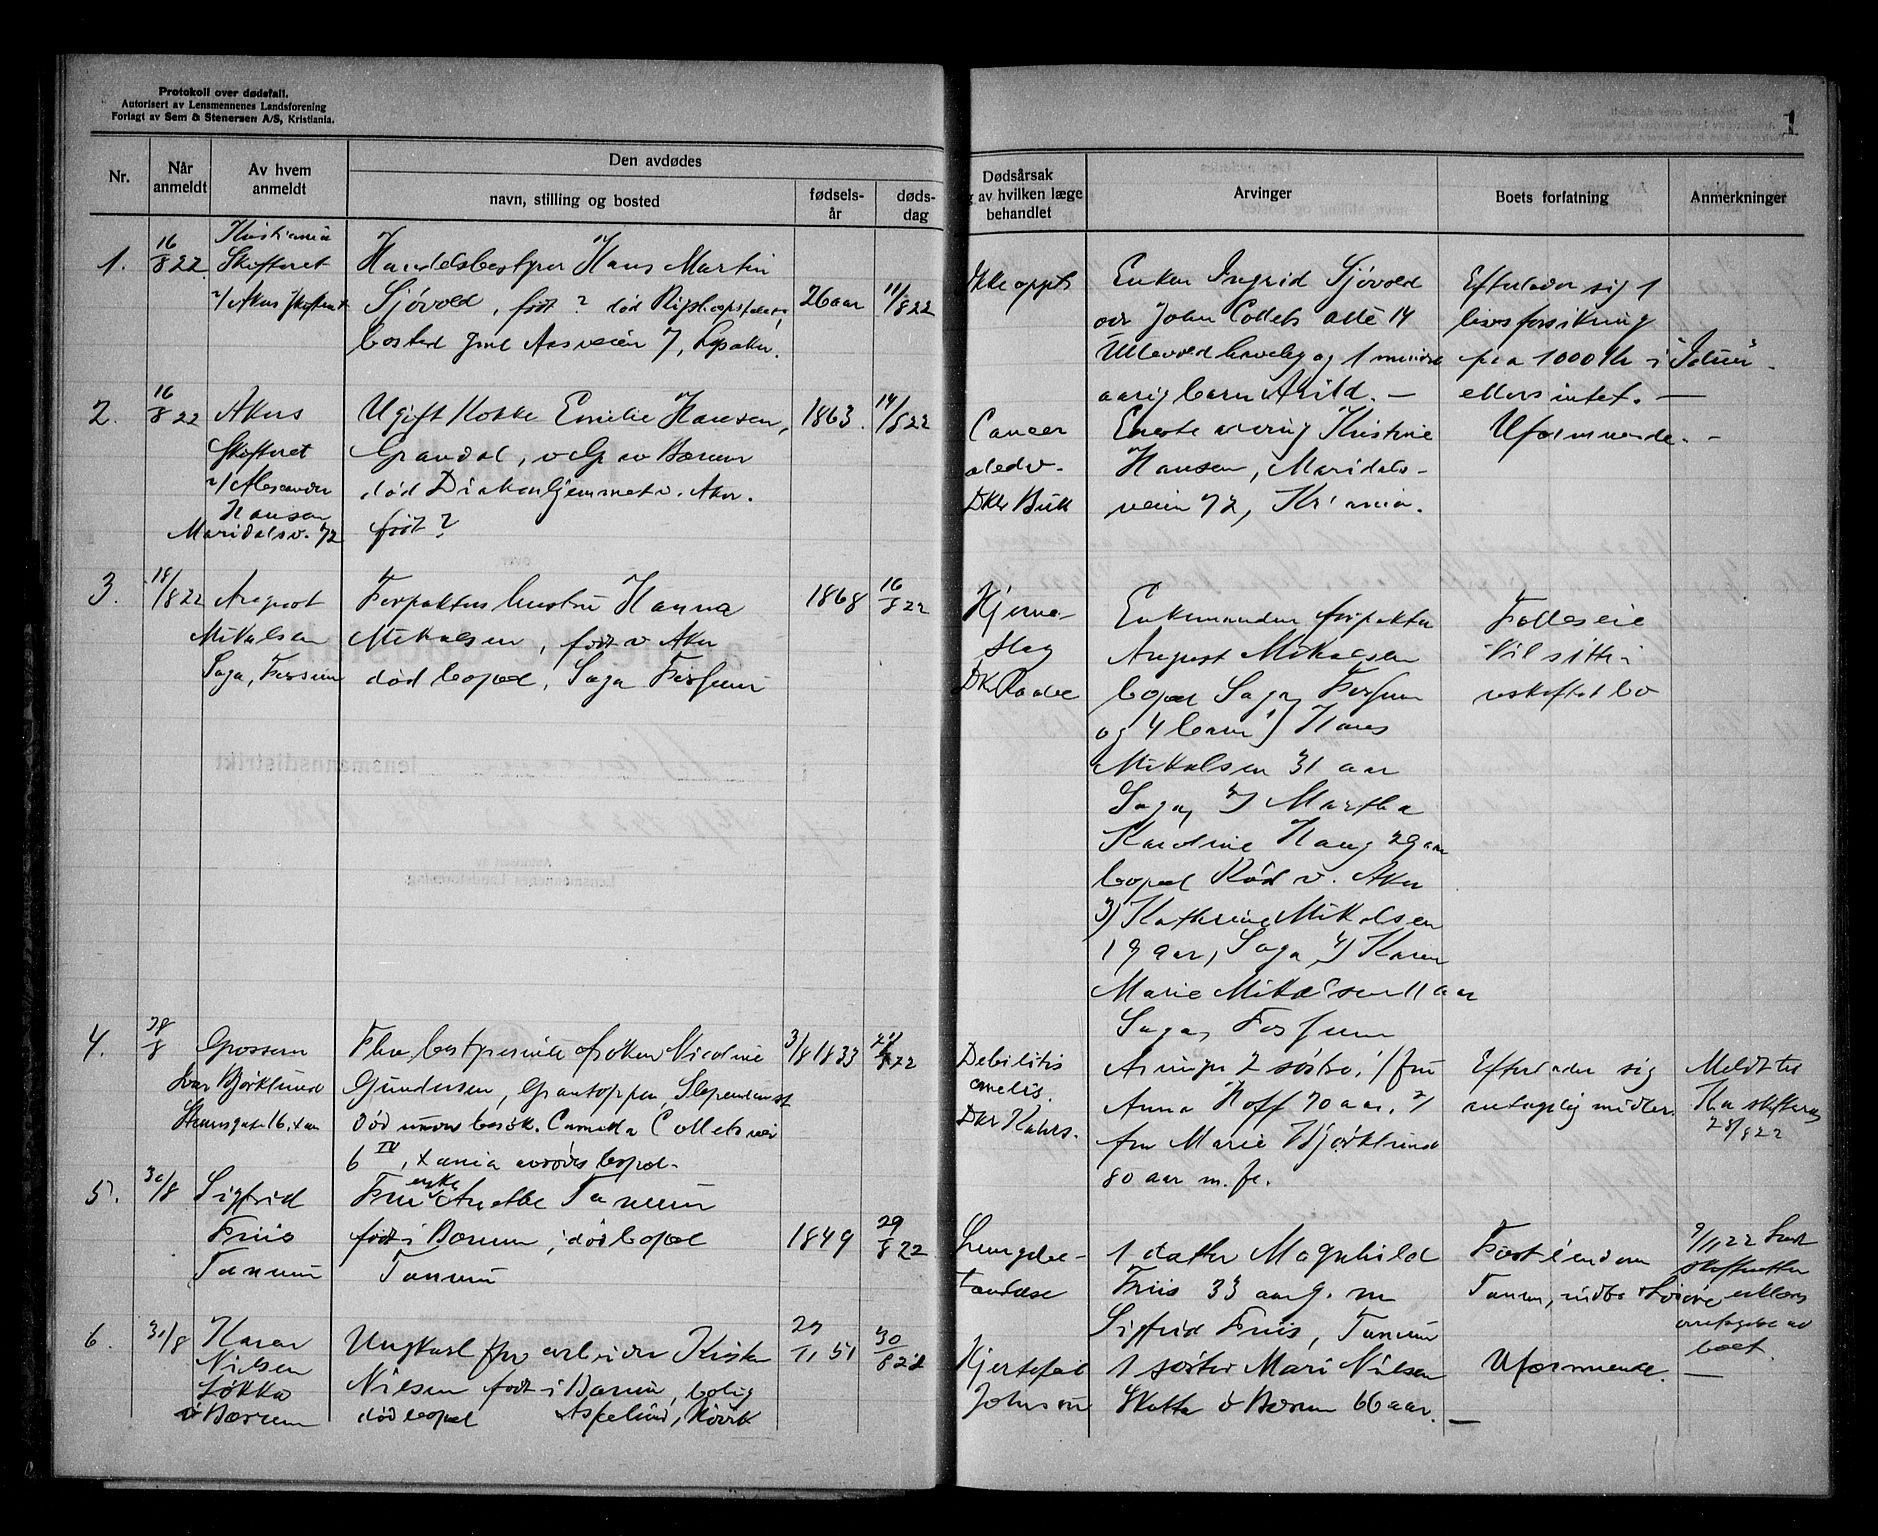 Protokoll over dødsfall.
Autorisert av Lensmennenes Landsforening
Forlagt av Sem & Stenersen A/S, Kristiania.
1
Nr.
Når anmeldt
Av hvem anmeldt
Den avdødes
navn, stilling og bosted
fødsels-år
døds-dag
Dødsårsak
og av hvilken læge
behandlet
Arvinger
Boets forfatning
Anmerkninger
1.
16/8 22
Kristiania
Skifteret
v/ Akers Skifteret
Handelsbestyrer Hans Martin
Sjøvold, født ? død Rigshospitalet,
bosted gml Aasveien 7, Lysaker.
26 aar
11/8 22
Ikke oppt
Enken Ingrid Sjøvold
adr John Colletts alle 14
Ullevold haveby og 1 mindre
aarig barn Arild. —
Efterlader sig 1
livsforsikring
paa 1000 Kr i "Idun"
ellers intet. —
2.
16/8 22
Akers
Skifteret
v/
Hansen
Maridalsv. 72
Ugift Kokke Emilie Hansen,
Grandal, v Bærum
død Diakonhjemmet v. Aker.
født ?
1863.
14/8 22
Cancer
Dr Bull
Eneste arving Kristine
Hansen, Maridals-
veien 72, Kr'ania.
Uformuende. —
3.
18/8 22
August
Mikalsen
Saga, Fossum
Forpakters hustru Hanna
Mikalsen, født v Aker
død bopæl, Saga Fossum
1868
16/8 22
Hjerne-
slag
Dr Raabe
Enkemanden forpakter
August Mikalsen
bopæl Saga, Fossum
og 4 barn 1) Hans
Mikalsen 31 aar
Saga, 2) Martha
Karoline Haug 29 aar
bopæl Rød v. Aker
3) Kathrine Mikalsen
19 aar, Saga 4) Karen
Marie Mikalsen 11 aar
Saga, Fossum
Fælleseie
Vil sitte i
uskiftet bo
4.
28/8
Grosserer
Ivar Bjørklund
16, X an
Fhv bestyrerinde frøken Nicoline
Gundersen, Grantoppen, Slependen st
død under besøk. Camilla Colletsvei
6 IV, Xania avdødes bopæl.
3/8 1833
8 22
Debilitis
Dr
Arvinger 2 søstre: 1/ fru
Anna Hoff 70 aar, 2/
fru Marie Bjørklund
80 aar m. fl.
Efterlader sig
antagelig midler.
Meldt til
Kra skifteret
28/8 22
5.
30/8
Sigfrid
Friis
Tanum
Fru enke Anethe Tanum
født i Bærum, død bopæl
Tanum
1849
29/8 22
Lungebe-
tændelse
1 datter Magnhild
Friis 33 aar g. m
Sigfrid Friis, Tanum
Fast eiendom
Tanum, indbo
9/11 22 Sendt
skifteretten
av
boet.
6.
31/8
Karen
Nilsen
Løkka
i Bærum
Ungkarl fhv arbeider Kristen
Nilsen født i Bærum, bolig
død bopæl Aspelund, Høvik
29/11 51
30/8 22
Hjertefeil
Johnson
1 søster Mari Nilsen
Skotta i Bærum 66 aar. —
Uformuende. —